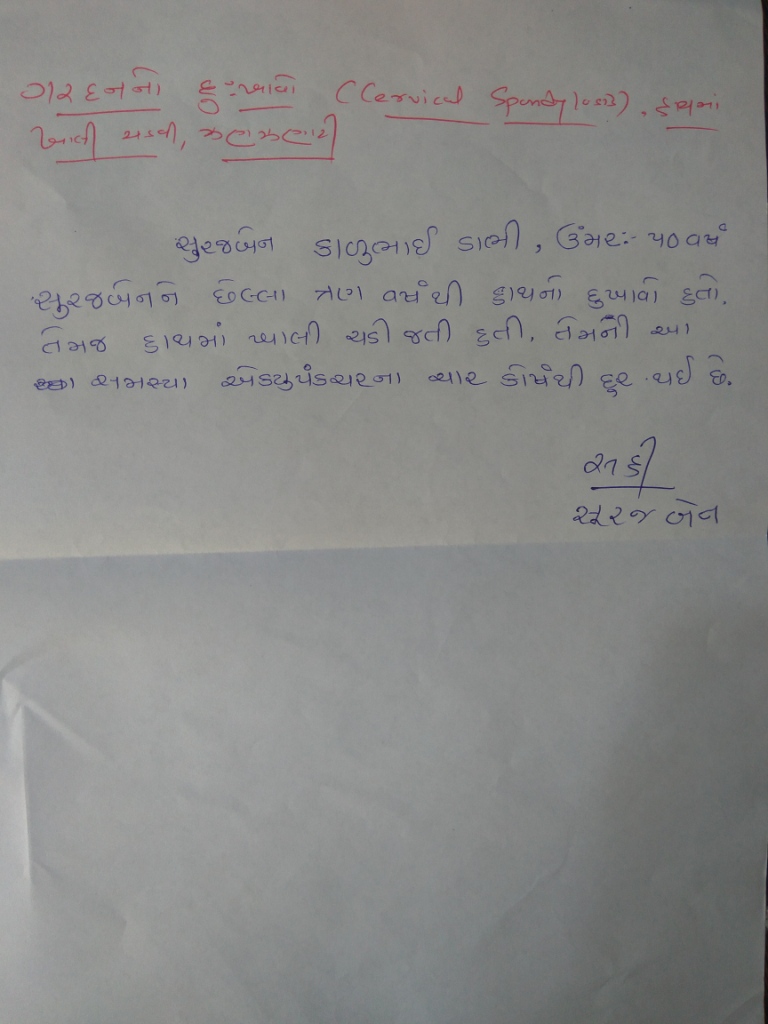 ગરદનનો દુઃખાવો (Cervical Spondylosis), હાથમાં
ખાલી ચડવી, ઝણઝણાટી
સુરજબેન કાળુભાઈ ડાભી, ઉંમર:- ૫૦ વર્ષ
સુરજબેનને છેલ્લા ત્રણ વર્ષથી હાથનો દુખાવો હતો.
તેમજ હાથમાં ખાલી ચડી જતી હતી. તેમની આ
સમસ્યા એક્યુપંકચરના ચાર કોર્ષથી દુર થઈ છે.
સહી
સૂરજ બેન